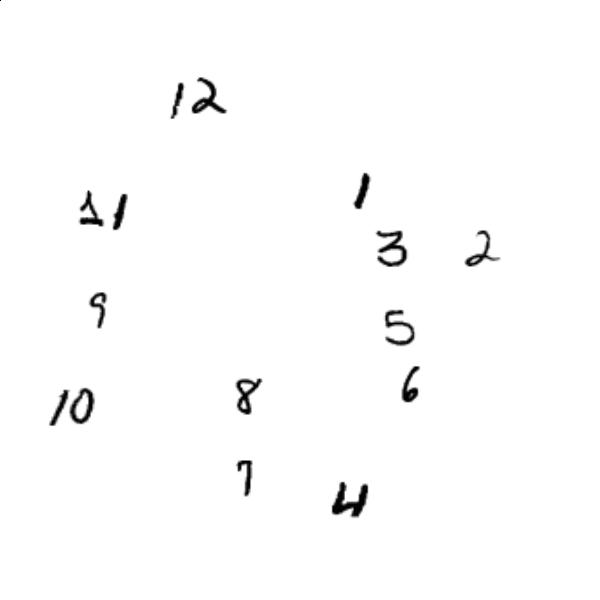 12
11
1
3 2
9
5
10 8 6
7 4